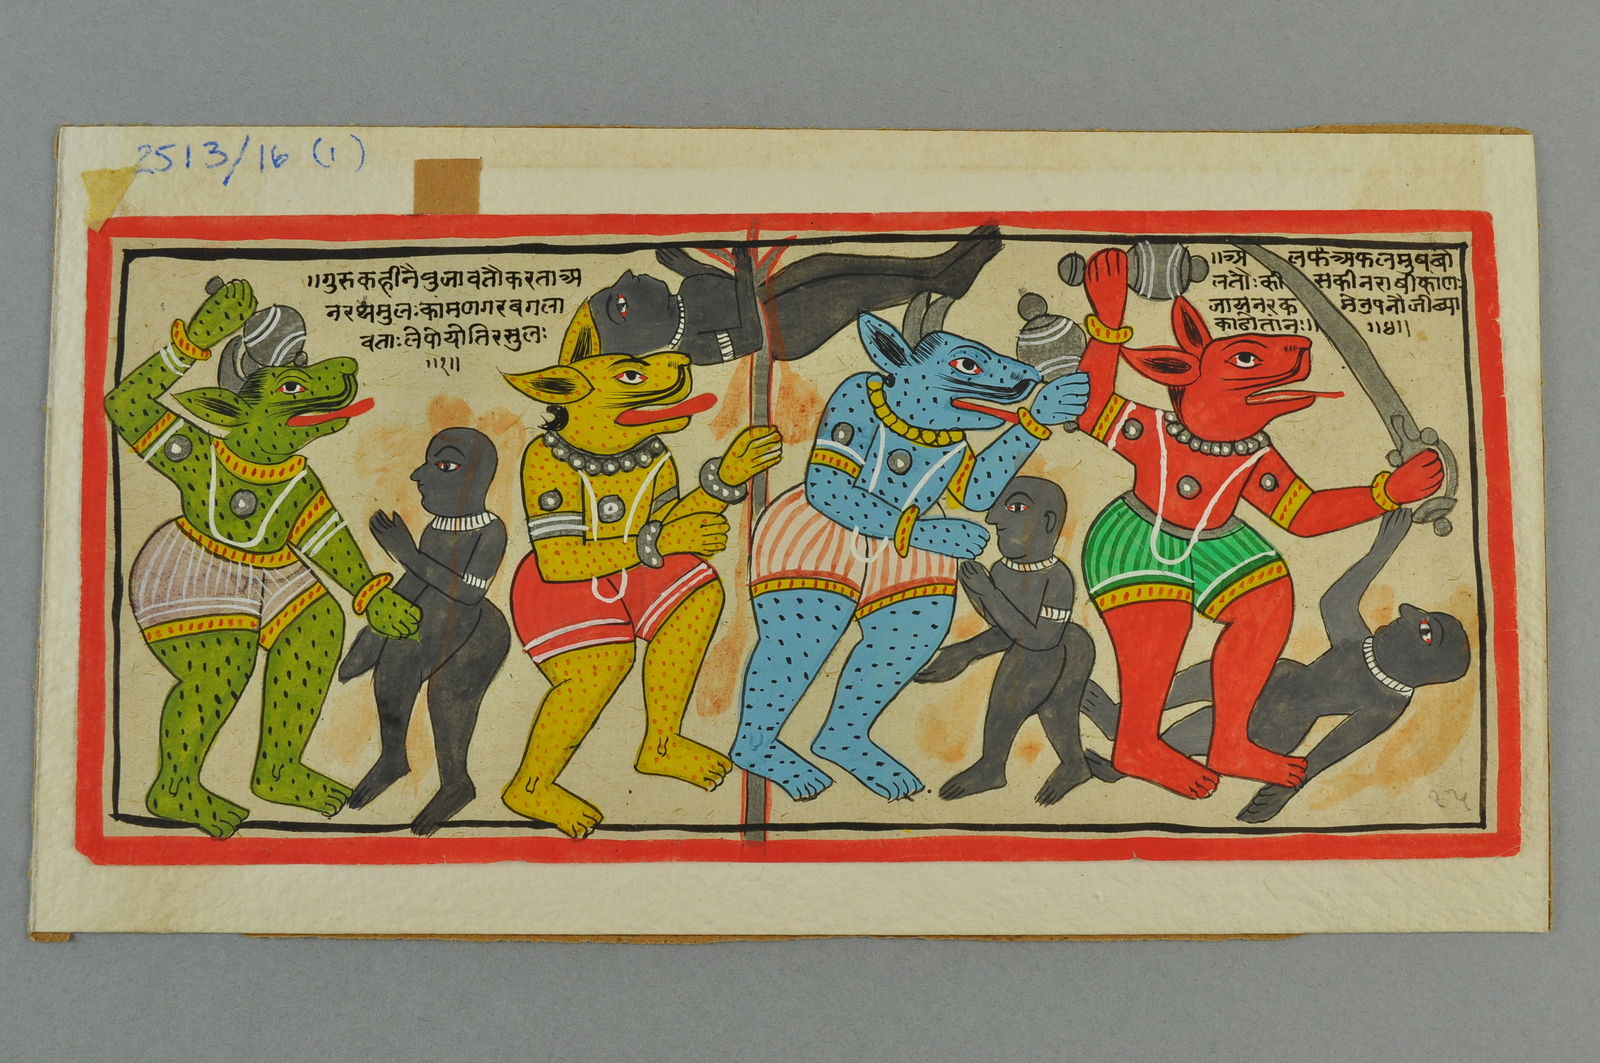 2513/16 (1)
॥गुरुकहीनैपुजावतौकरताअ
नरथमुलःकामणगरबगला
वताःलेपीयोतिरसुलः
॥१॥
॥अ लफैअफलमुषबो
लतौःकी सकीनराषीकाणः
जासुनरक मेउपनौजीव्या
काढीतानः॥ ॥४॥
२५